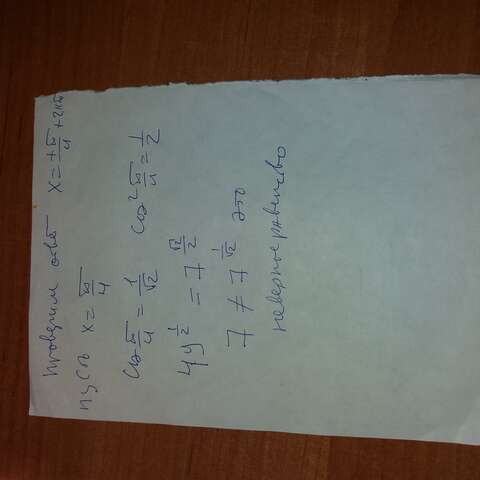 проверим ответ x = ±π/4 + 2πn
пусть x = π/4
cos π/4 = 1/√2 cos² π/4 = 1/2
49^(1/2) = 7^(√2/2)
7 ≠ 7^(1/√2) это
неверное равенство